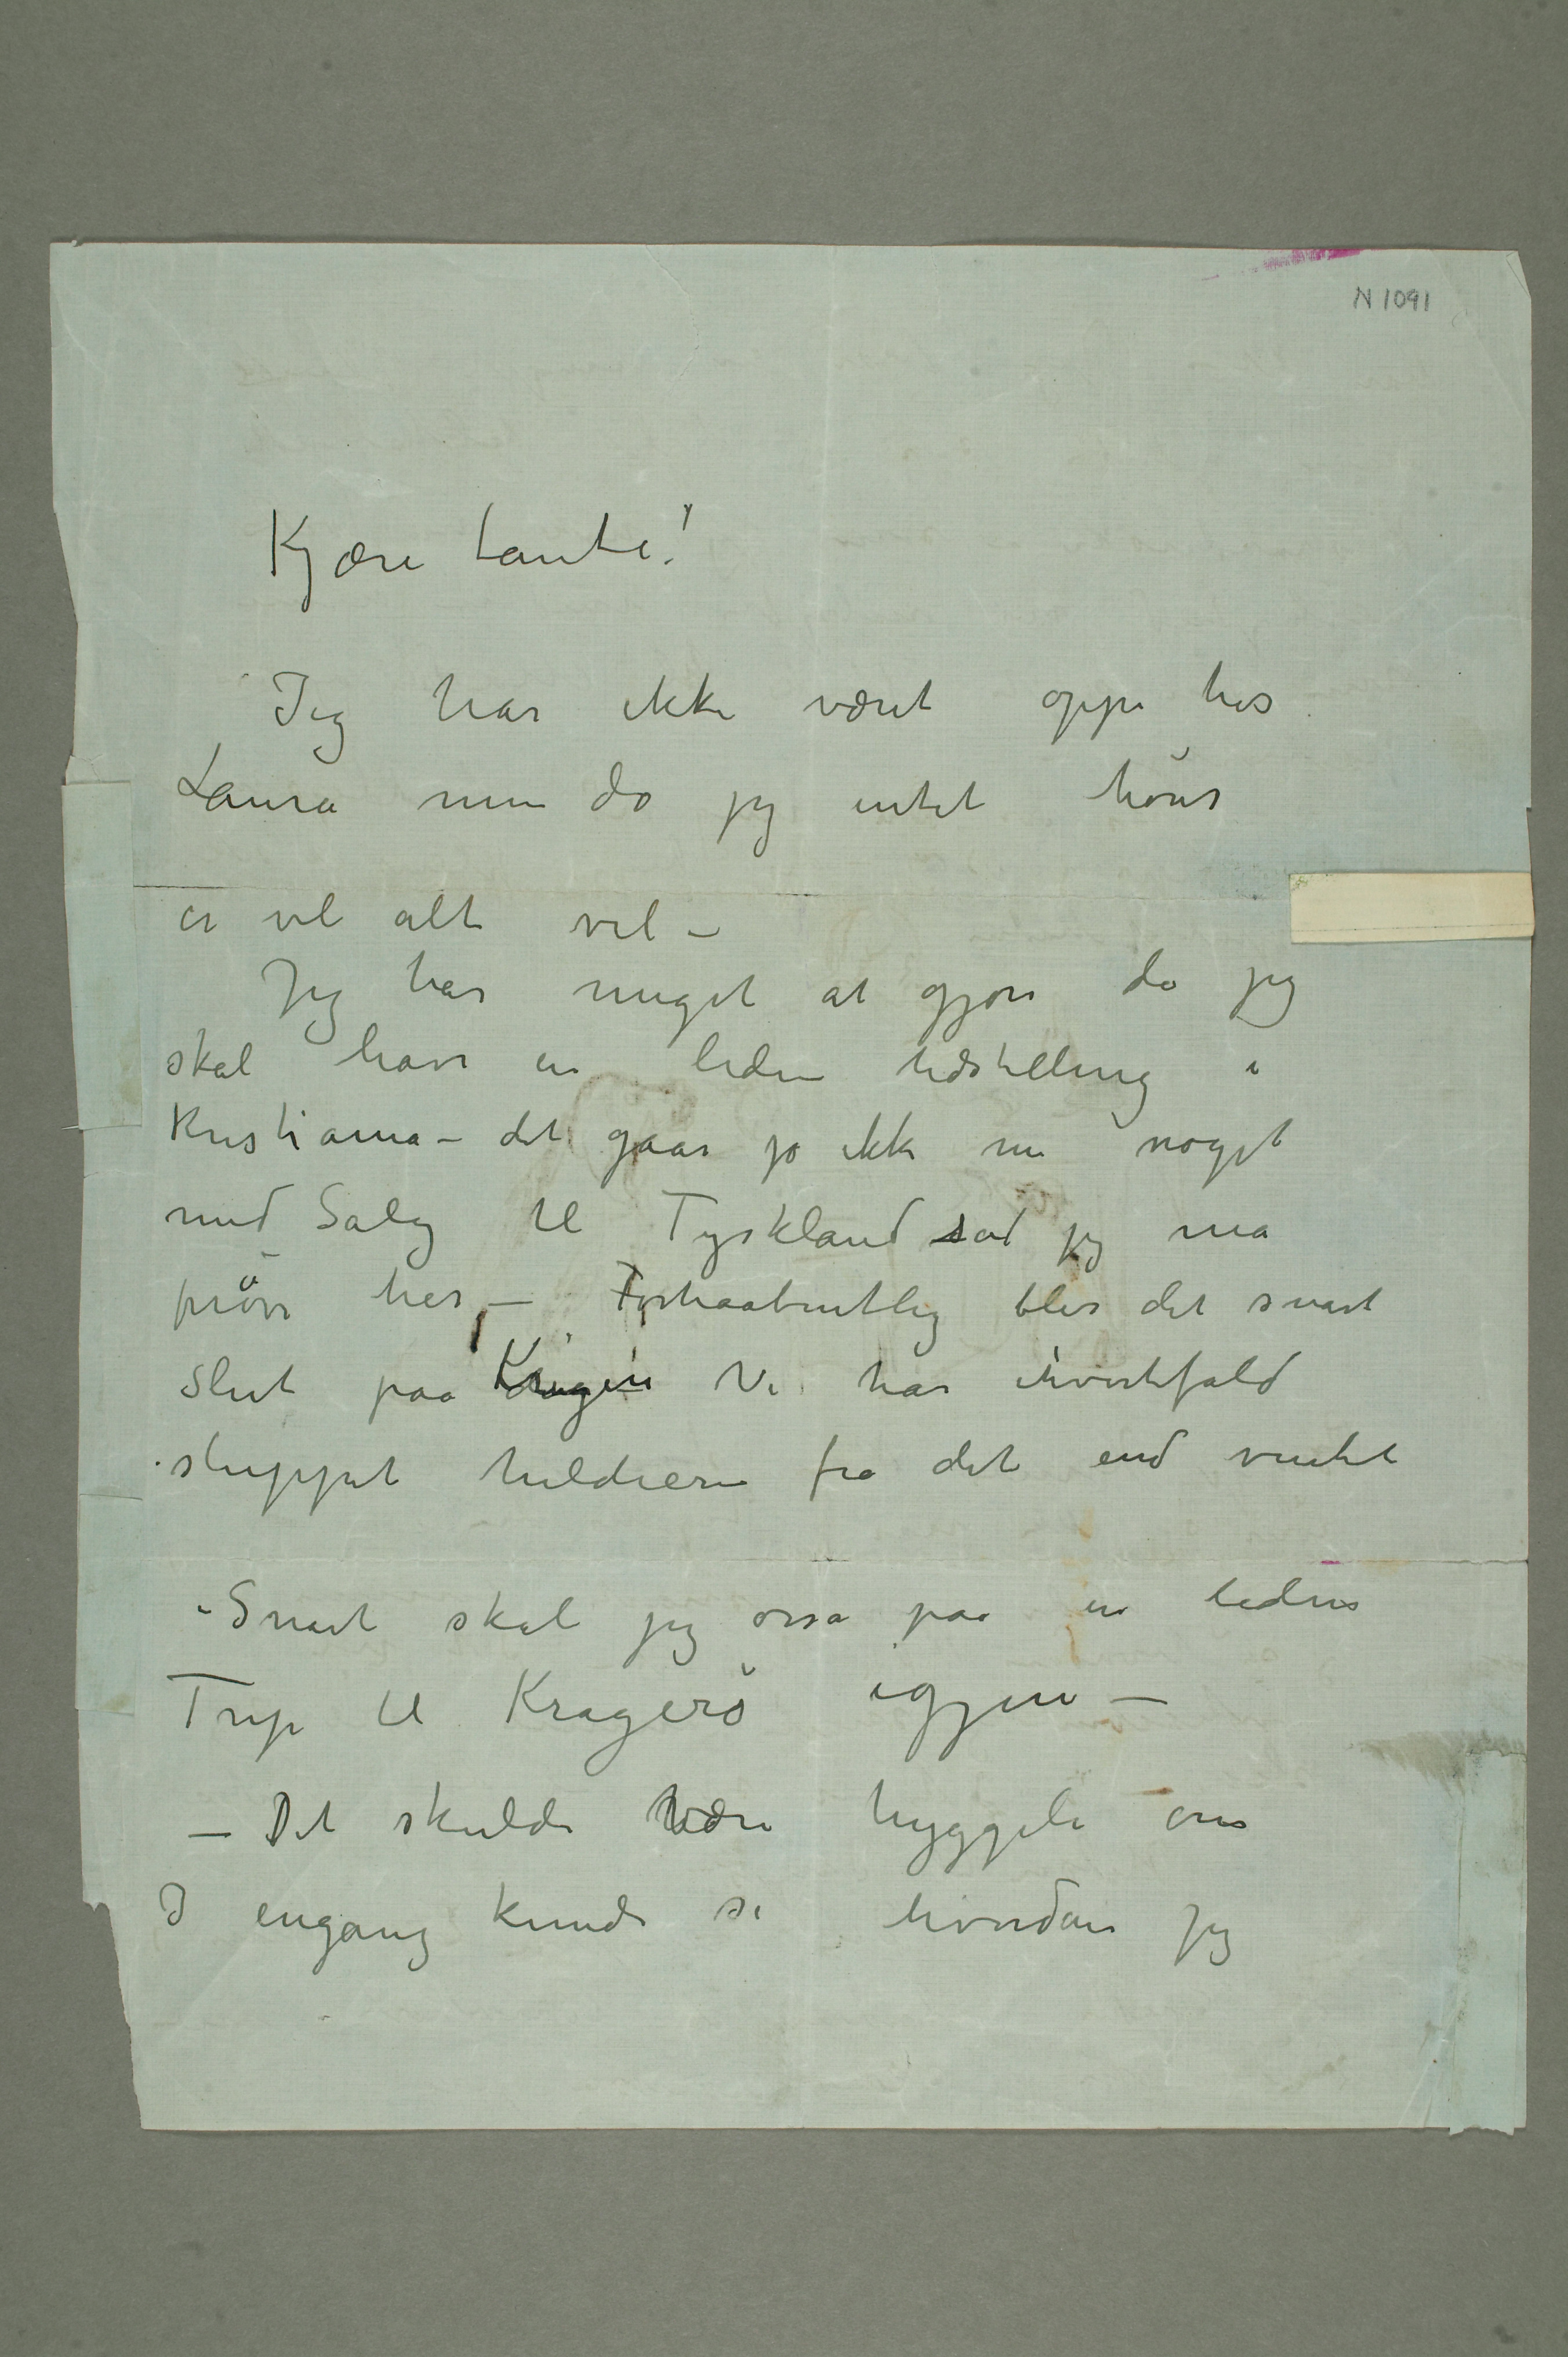 N 1091
Kjære tante!
Jeg har ikke været oppe hos
Laura men da jeg intet hører
er vel alt vel –
Jeg har meget at gjøre da jeg
skal have en liden Udstilling i
Kristiania – det gaar jo ikke nu noget
med Salg til Tyskland saa jeg må
prøve her – Forhaabentlig blir det snart
Slut paa Krigen Vi har ihvertfald
sluppet heldigere fra det end ventet
– Snart skal jeg osså paa en liden
Trip til Kragerø igjen –
– Det skulde være hyggeli om
I engang kunde se hvordan jeg